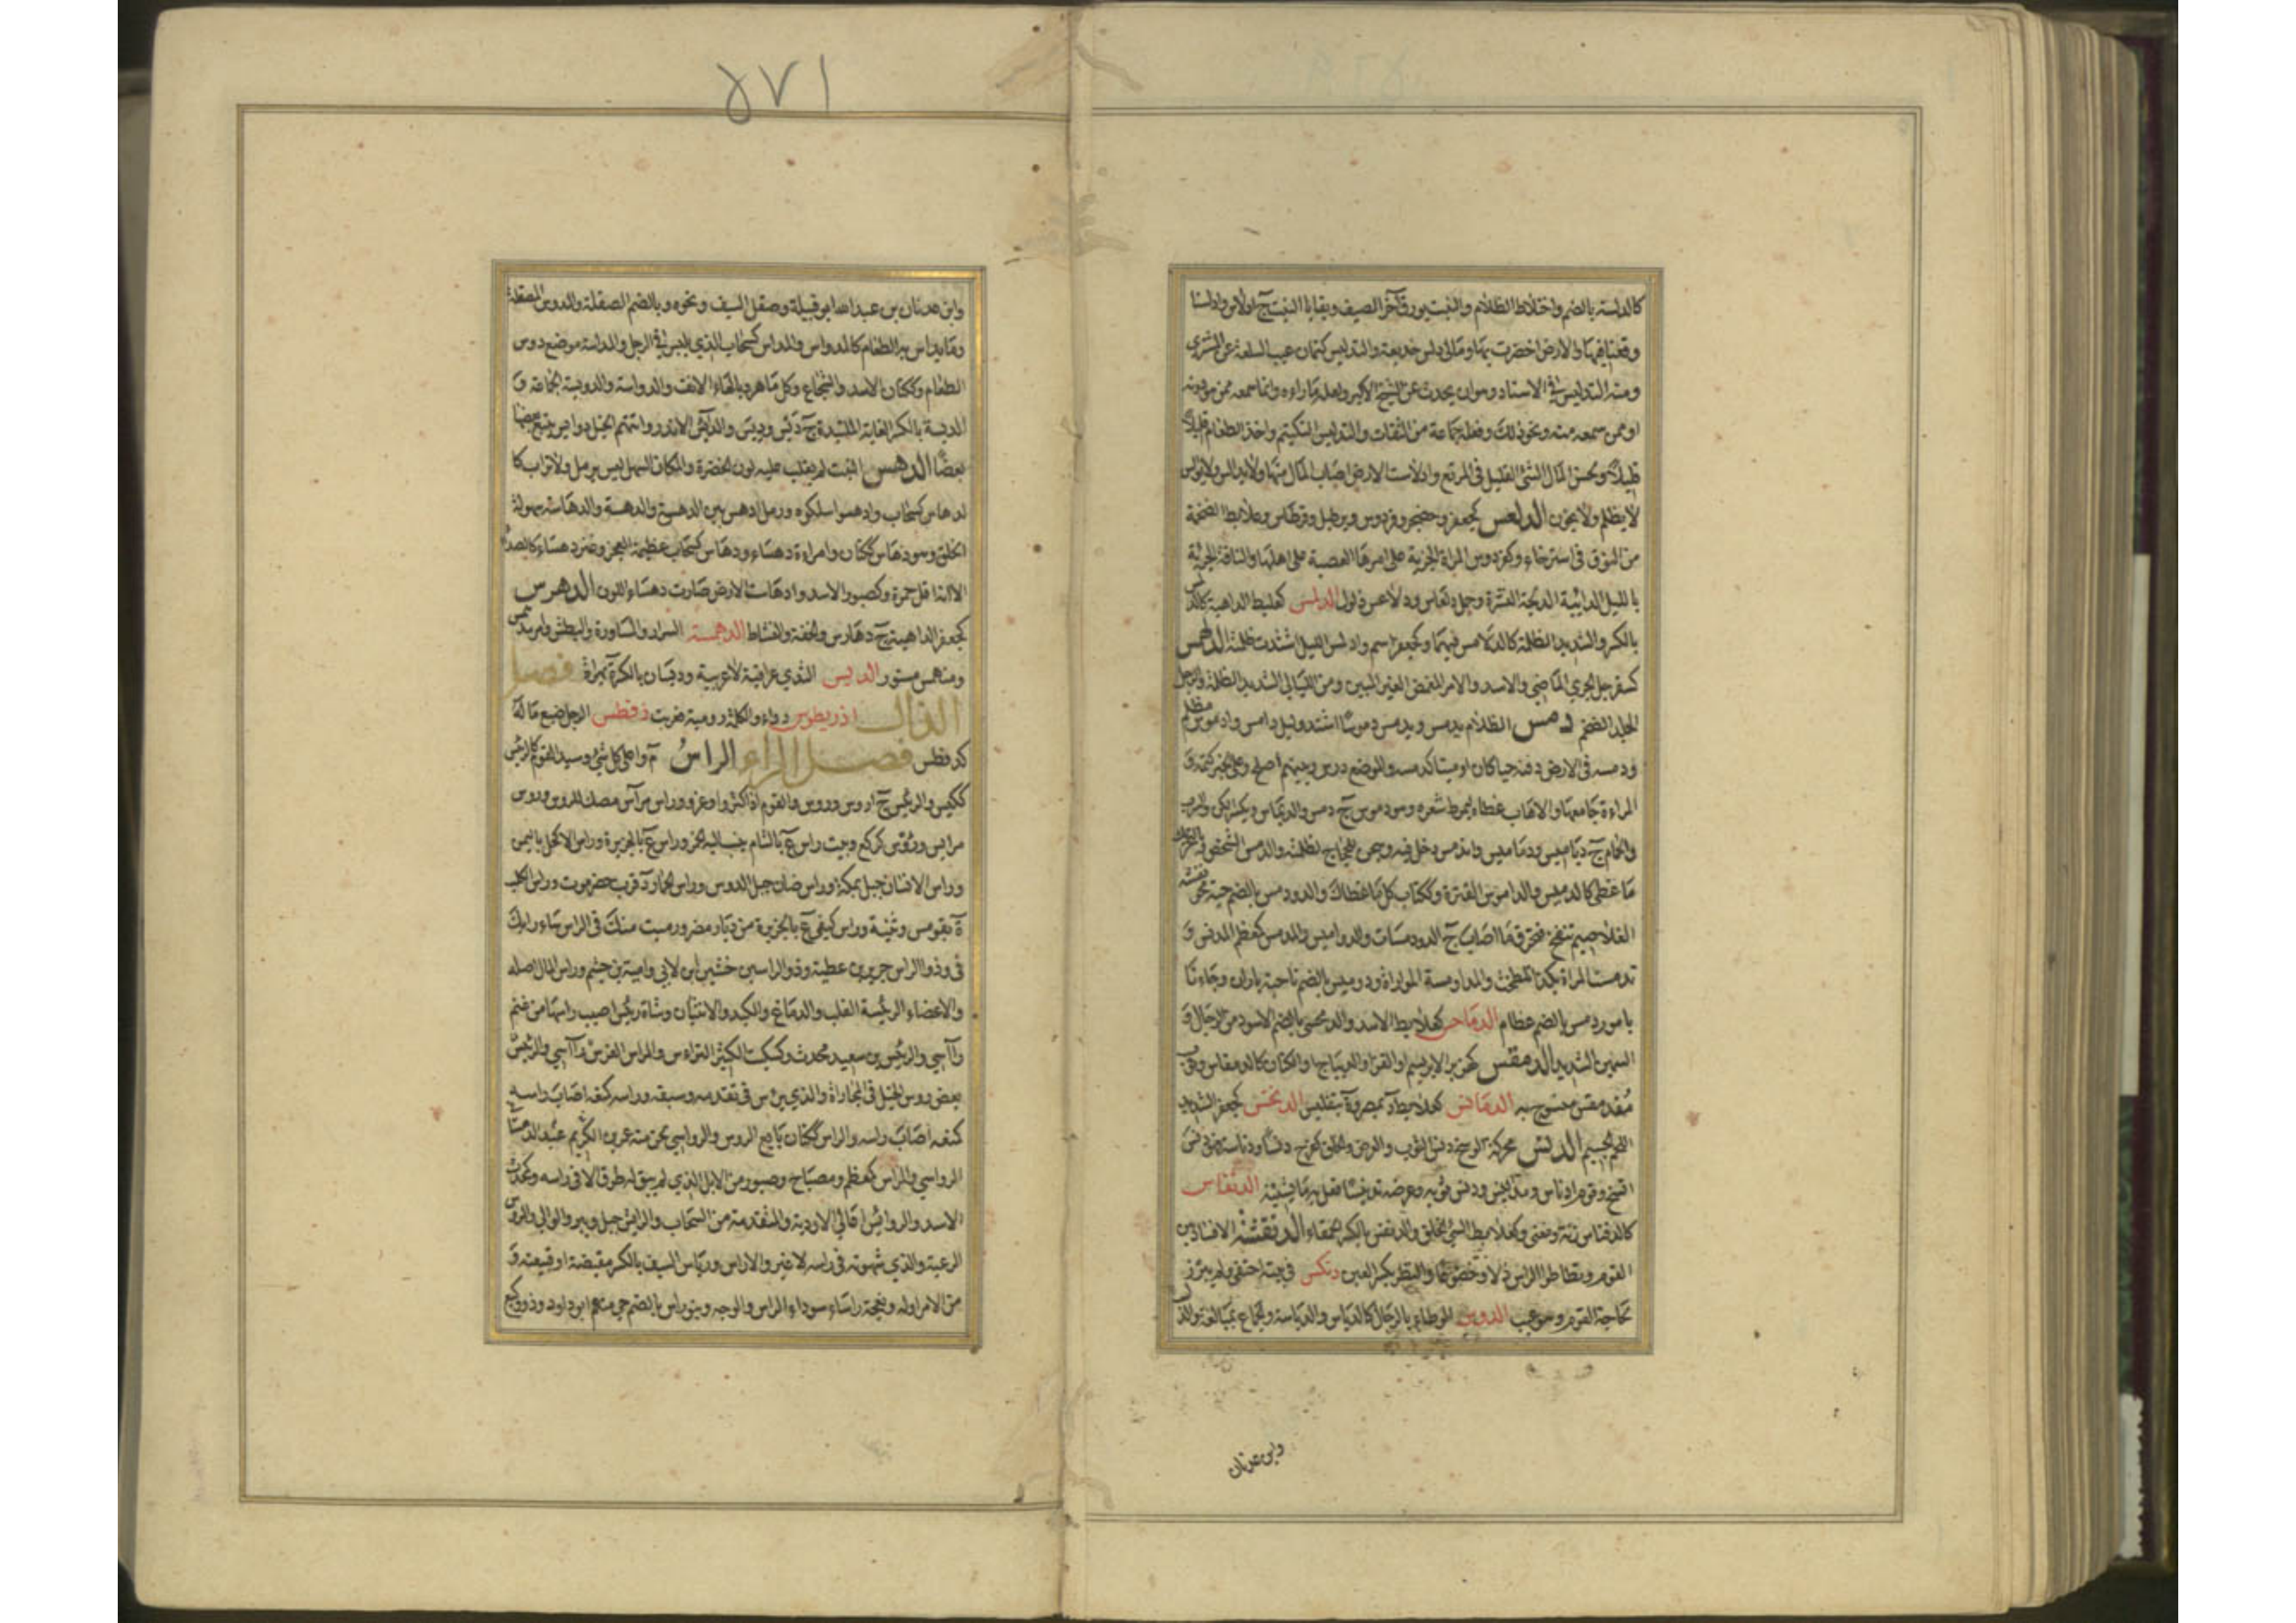 كالدلسة بالضم واختلاط الظلام والنبت يورق آخر الصيف وبقايا النبت ج ادلاس وادلسنا
وقعنا فيها والارض اخضرت بها ومالي دلس خديعة والتدليس كتمان عيب السلعة عن المشتري
ومنه التدليس في الاسناد وهو ان يحدث عن الشيخ الاكبر ولعله ما راءه وانما سمعه ممن هو دونه
او ممن سمعه منه ونحو ذلك وفعله جماعة من الثقات والتدلس التكتم واخذ الطعام قليلا
قليلا ولحس المال الشئ القليل في المرتع وادلاست الارض اصاب المال منها ولا يدالس ولا يوالس
لا يظلم ولا يخون الدلعس كجعفر وحضجر وفردوس وبرطيل وقرطاس وعلابط الضخمة
من النوق في استرخاء وكفردوس المراة الجرية على امرها العصية على اهلها والناقة الجرية
بالليل الدائبة الدلجة النشزة وجمل دلعاس ودلاعس ذلول الدلمس كعلبط الداهية كالدلمس
بالكسر والشديد الظلمة كالدلامس فيهما وكجعفر اسم وادلمس الليل اشتدت ظلمته الدلهمس
كسفرجل الجري الماضي والاسد والامر المغمض الغير المبين ومن الليالي الشديد الظلمة والرجل
الجلد الضخم دمس الظلام يدمس ويدمس دموسا اشتد وليل دامس وادموس مظلم
ودمسه في الارض دفنه حيا كان او ميتا كدمسه والموضع درس وبينهم اصلح وعلى الخبر كتمه و
المراءة جامعها والاهاب غطاه ليمرط شعره وهو دموس ج دمس والديماس ويكسر الكن والسرب
والحمام ج دياميس ودماميس واندمس دخل فيه وسجن للحجاج لظلمته والدمس الشخص وبالتحريك
ما غطي كالدميس والداموس القترة وككتاب كل ما غطاك والدودمس بالضم حية محرنفشة
الغلاصيم تنفخ فتحرق ما اصاب ج الدودمسات والدواميس والمدمس كمعظم المدفن و
تدمست المراة بكذا تلطخت والمدامسة المواراة ودوميس بالضم ناحية باران وجاءنا
بامور دمس بالضم عظام الدماحس كعلابط الاسد والدمحسي بالضم الاسود من الرجال و
السمين الشديد الدمقس كهزبر الابريسم او القز او الديباج او الكتان كالدمقاس وثوب
مدمقس منسوج به الدمانس كعلابط د بمصر وة بتفليس الدنحس كجعفر الشديد
اللحم الجسيم الدنس محركة الوسخ دنس الثوب والعرض والخلق كفرح دنسا ودناسة فهو دنس
اتسخ وقوم ادناس ومدانيس ودنس ثوبه وعرضه تدنيسا فعل به ما يشينه الدنفاس
كالدفناس زنة ومعنى وكعلابط السيئ الخلق والدنفس بالكسر الحمقاء الدنقسة الافساد بين
القوم وتطاطؤ الراس ذلا وخضوعا والنظر بكسر العين دنكس في بيته اختفى ولم يبرز
لحاجة القوم وهو عيب الدوس الوطاء بالرجل كالدياس والدياسة والجماع بمبالغة والذل
وابن عدنان
٥٧١
وابن عدنان بن عبد الله ابو قبيلة وصقل السيف ونحوه وبالضم الصقلة والمدوس المصقلة
وما يداس به الطعام كالمدواس والمداس كسحاب الذي يلبس في الرجل والمداسة موضع دوس
الطعام وككتان الاسد والشجاع وكل ماهر وبالهاء الانف والدواسة والدويسة الجماعة و
الديسة بالكسر الغابة المتلبدة ج ديس وديس والدائس الاندر واتتهم الخيل دوائس يتبع بعضها
بعضا الدهس النبت لم يغلب عليه لون الخضرة والمكان السهل ليس برمل ولا تراب كا
لدهاس كسحاب وادهسوا سلكوه ورمل ادهس بين الدهس والدهسة والدهاسة سهولة
الخلق وهو دهاس ككتان وامراءة دهساء ودهاس كسحاب عظيمة العجز وعنز دهساء كالصداء
الا انها اقل حمرة وكصبور الاسد وادهاست الارض صارت دهساء اللون الدهرس
كجعفر الداهية ج دهارس والخفة والنشاط الدهمسة السرار والمشاورة والبطش وامر مدهمس
ومنهمس مستور الديس الثدي عراقية لا عربية وديسان بالكسر ة بهراة فصل
الذال اذريطوس دواء والكلمة رومية عربت ذفطس الرجل ضيع ماله
كدفطس فصل الراء الراس م واعلى كل شئ وسيد القوم كالريس
ككيس والرئيس ج ارؤس ورؤس والقوم اذا كثروا وعزوا وراس مراس مصك للرؤس ورؤس
مرائس ورؤس كركع وبيت راس ع بالشام ينسب اليه الخمر وراس ع بالجزيرة وراس الاكحل باليمن
وراس الانسان جبل بمكة وراس ضان جبل لدوس وراس الحمار د قرب حضرموت وراس الكلب
ة بقومس وثنية وراس كيفى ع بالجزيرة من ديار مضر ورميت منك في الراس ساء رايك
في وذو الراس جرير بن عطية وذو الراسين خشين ابن لاي وامية بن جشم وراس المال اصله
والاعضاء الرئيسة القلب والدماغ والكبد والانثيان وشاة رئيس اصيب راسها من غنم
رآسي والرئيس بن سعيد محدث وكسكيت الكثير التراءس والمراس الفرس
بعض رؤس الخيل في المجاراة والذي يرئس في تقدمه وسبقه وراسه كمنعه اصاب راسه
ككتان بائع الرؤس والرواسي لحن منه عمر بن عبد الكريم
الرواسي والمراس كمعظم ومصباح وصبور من الابل الذي لم يبق له طرق الا في راسه وكمحدث
الاسد والروائس اعالي الاودية والمتقدمة من السحاب والرائس جبل وبير والوالي والمرؤس
الرعية والذي شهوته في راسه لا غير والاراس ورياس السيف بالكسر مقبضه او قبيعته و
من الامر اوله ونعجة راساء سوداء الراس والوجه وبنو راس بالضم حي منهم ابو داود